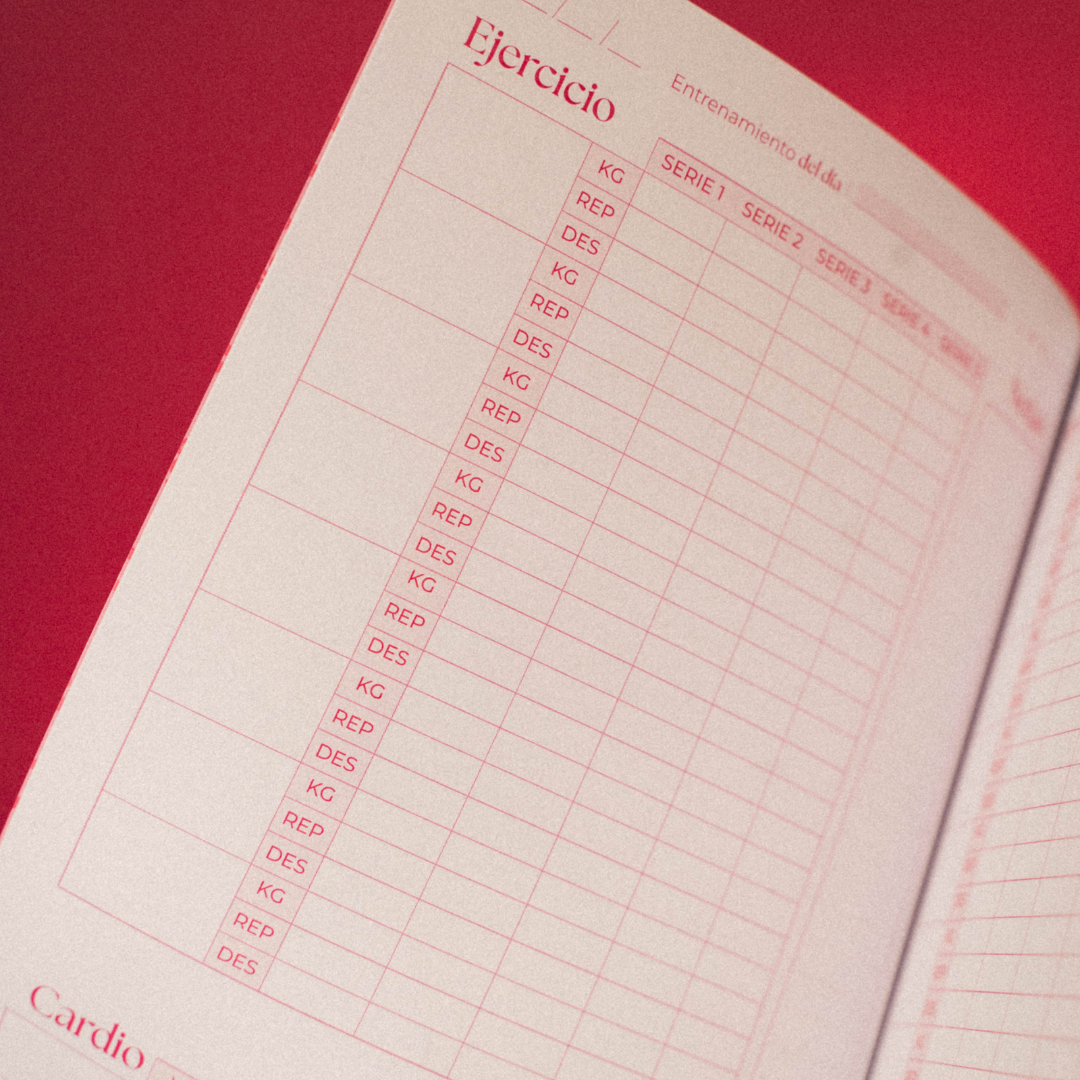 Ejercicio
Entrenamiento del día
SERIE 1 SERIE 2 SERIE 3 SERIE 4 SERIE
KG
REP
DES
KG
REP
DES
KG
REP
DES
KG
REP
DES
KG
REP
DES
KG
REP
DES
KG
REP
DES
KG
REP
DES
Cardio